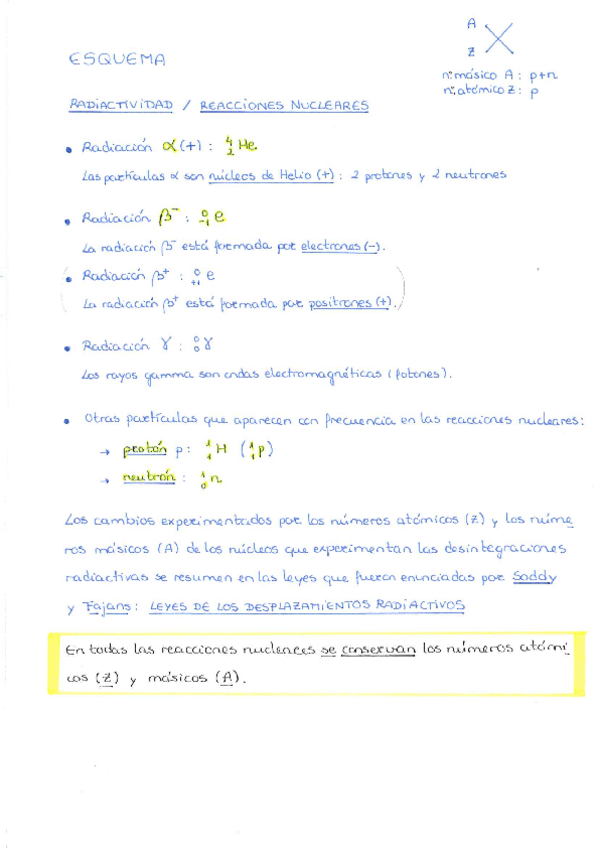 A
Z
nº másico A : p+n
nº atómico Z : p
ESQUEMA
RADIACTIVIDAD / REACCIONES NUCLEARES
• Radiación α (+) : ⁴₂He
Las partículas α son núcleos de Helio (+) : 2 protones y 2 neutrones
• Radiación β⁻ : ⁰₋₁e
La radiación β⁻ está formada por electrones (-).
• Radiación β⁺ : ⁰₊₁e
La radiación β⁺ está formada por positrones (+).
• Radiación γ : ⁰₀γ
Los rayos gamma son ondas electromagnéticas (fotones).
• Otras partículas que aparecen con frecuencia en las reacciones nucleares:
→ protón p: ¹₁H (¹₁p)
→ neutrón : ¹₀n
Los cambios experimentados por los números atómicos (Z) y los núme
ros másicos (A) de los núcleos que experimentan las desintegraciones
radiactivas se resumen en las leyes que fueron enunciadas por Soddy
y Fajans: LEYES DE LOS DESPLAZAMIENTOS RADIACTIVOS
En todas las reacciones nucleares se conservan los números atómi
cos (Z) y másicos (A).